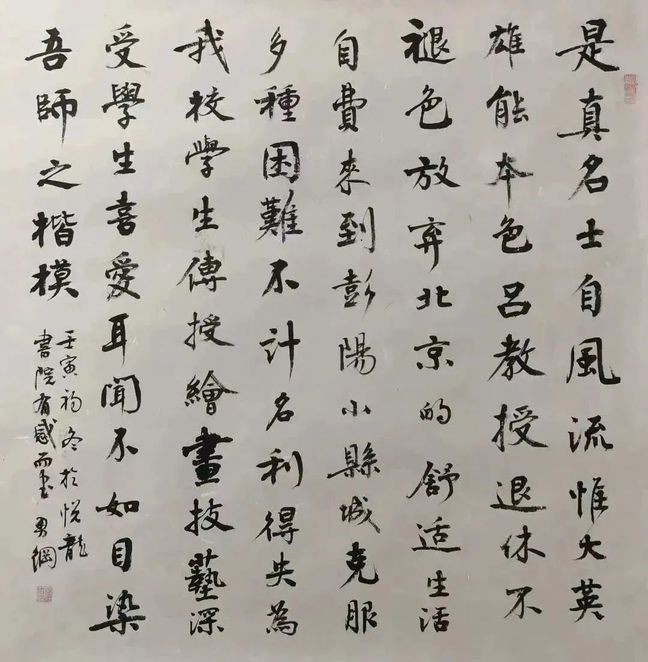 是真名士自風流惟大英
雄能本色呂教授退休不
褪色放弃北京的舒适生活
自費來到彭陽小縣城克服
多種困難不计名利得失為
我校學生傳授繪畫技藝深
受學生喜愛耳聞不如目染
吾師之楷模
壬寅初冬於悦龍
書院有感而书 勇綱